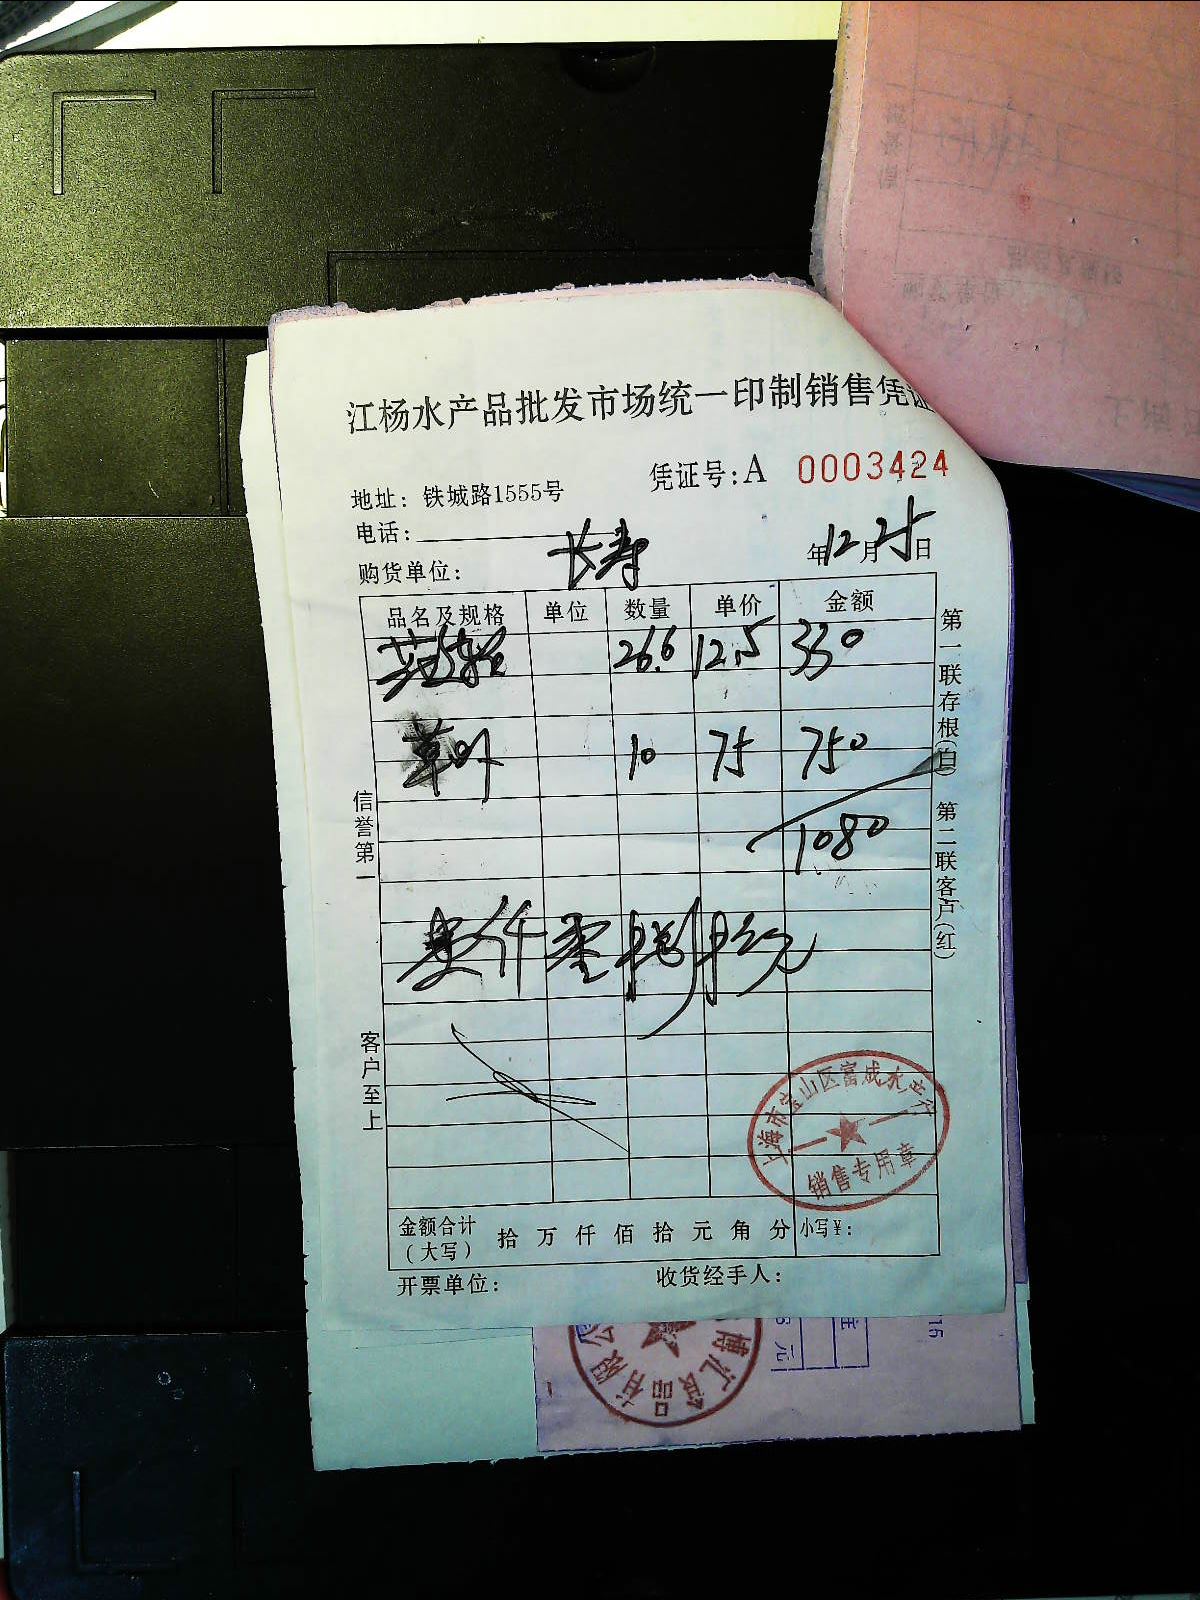 江杨水产品批发市场统一印制销售凭证
凭证号:A 0003424
地址: 铁城路1555号
电话:
购货单位: 长寿 年12月25日
品名及规格 单位 数量 单价 金额
26.6 12.5 330
草 10 75 750
1080
壹仟零捌拾元
金额合计(大写) 拾 万 仟 佰 拾 元 角 分 小写¥:
开票单位: 收货经手人:
信誉第一
客户至上
第一联存根(白) 第二联客户(红)
上海市宝山区富成水产行
销售专用章
博汇食品有限公
元